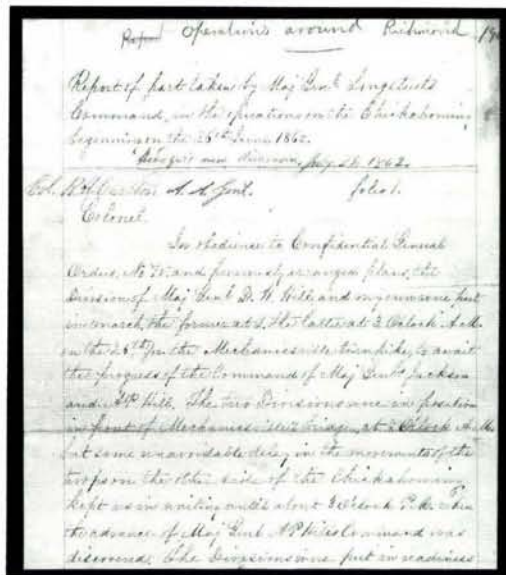 Report Operations around Richmond
Report of part taken by Maj Genl Longstreets
Command, in the operations on the Chickahominy
beginning on the 26th June 1862.
July 28, 1862.
Col. A. A. Genl.
Colonel
In obedience to Confidential General
Orders, No 75, and previously arranged plans, the
Division of Maj Genl D. H. Hill and my own were put
in march, the former at 2, the latter at 3 O'clock A.M.
on the 26th, on the Mechanicsville turnpike, to await
the progress of the Command of Maj Genls Jackson
and A P Hill. The two Divisions were in position
in front of Mechanicsville bridge, at 8 O'clock A.M.
but some unavoidable delay in the movements of the
troops on the other side of the Chickahominy
kept us in waiting until about 3 o'clock P.M. when
the advance of Maj Genl A P Hills Command was
discovered. The Divisions were put in readiness